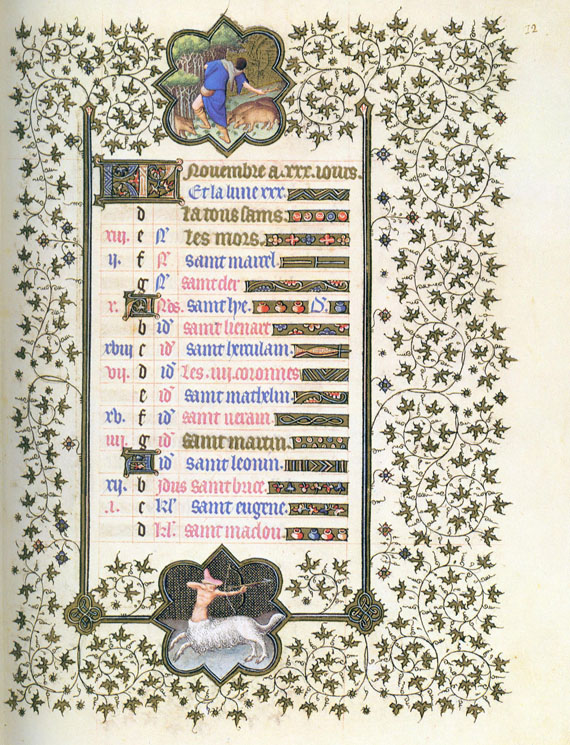 12
Novembre a .xxx. iours.
Et la lune xxx.
d la touſſains
xiii. e N les mors.
ii. f N saint marcel.
g N saint cler
x. A Nos. saint lye. D.
b id saint lienart
xviii c id saint herculain.
vii. d id les .iiii. coronnes
e id saint mathelin.
xv. f id saint verain.
iiii. g id saint martin.
A id saint leonin.
xii. b jdus saint brice.
i. c kl. saint eugene.
d kl. saint maclou.